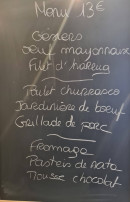 Menu 13€
Gésiers
oeuf mayonnaise
Filet d'hareng
Poulet churrasco
Jardinière de boeuf
Grillade de porc
Fromage
Pasteis de nata
Mousse chocolat